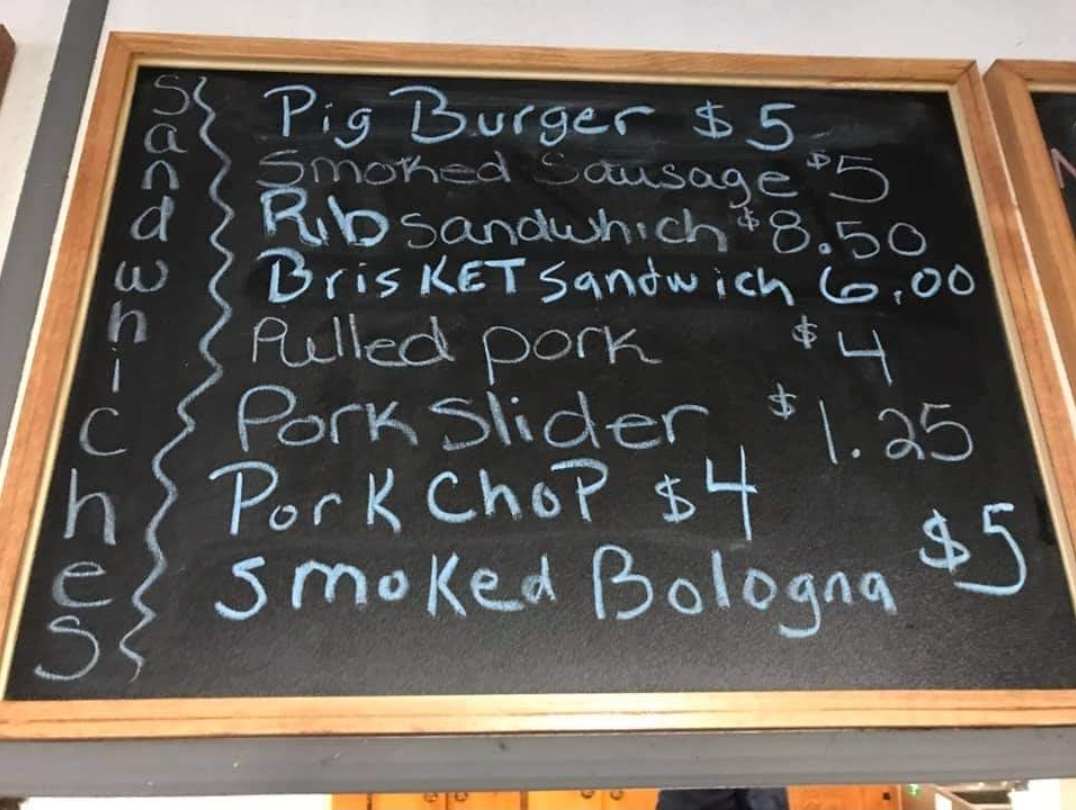 Sandwhiches
Pig Burger $5
Smoked Sausage $5
Rib sandwhich $8.50
BrisKET Sandwich 6.00
Pulled pork $4
Pork Slider $1.25
Pork ChoP $4
Smoked Bologna $5